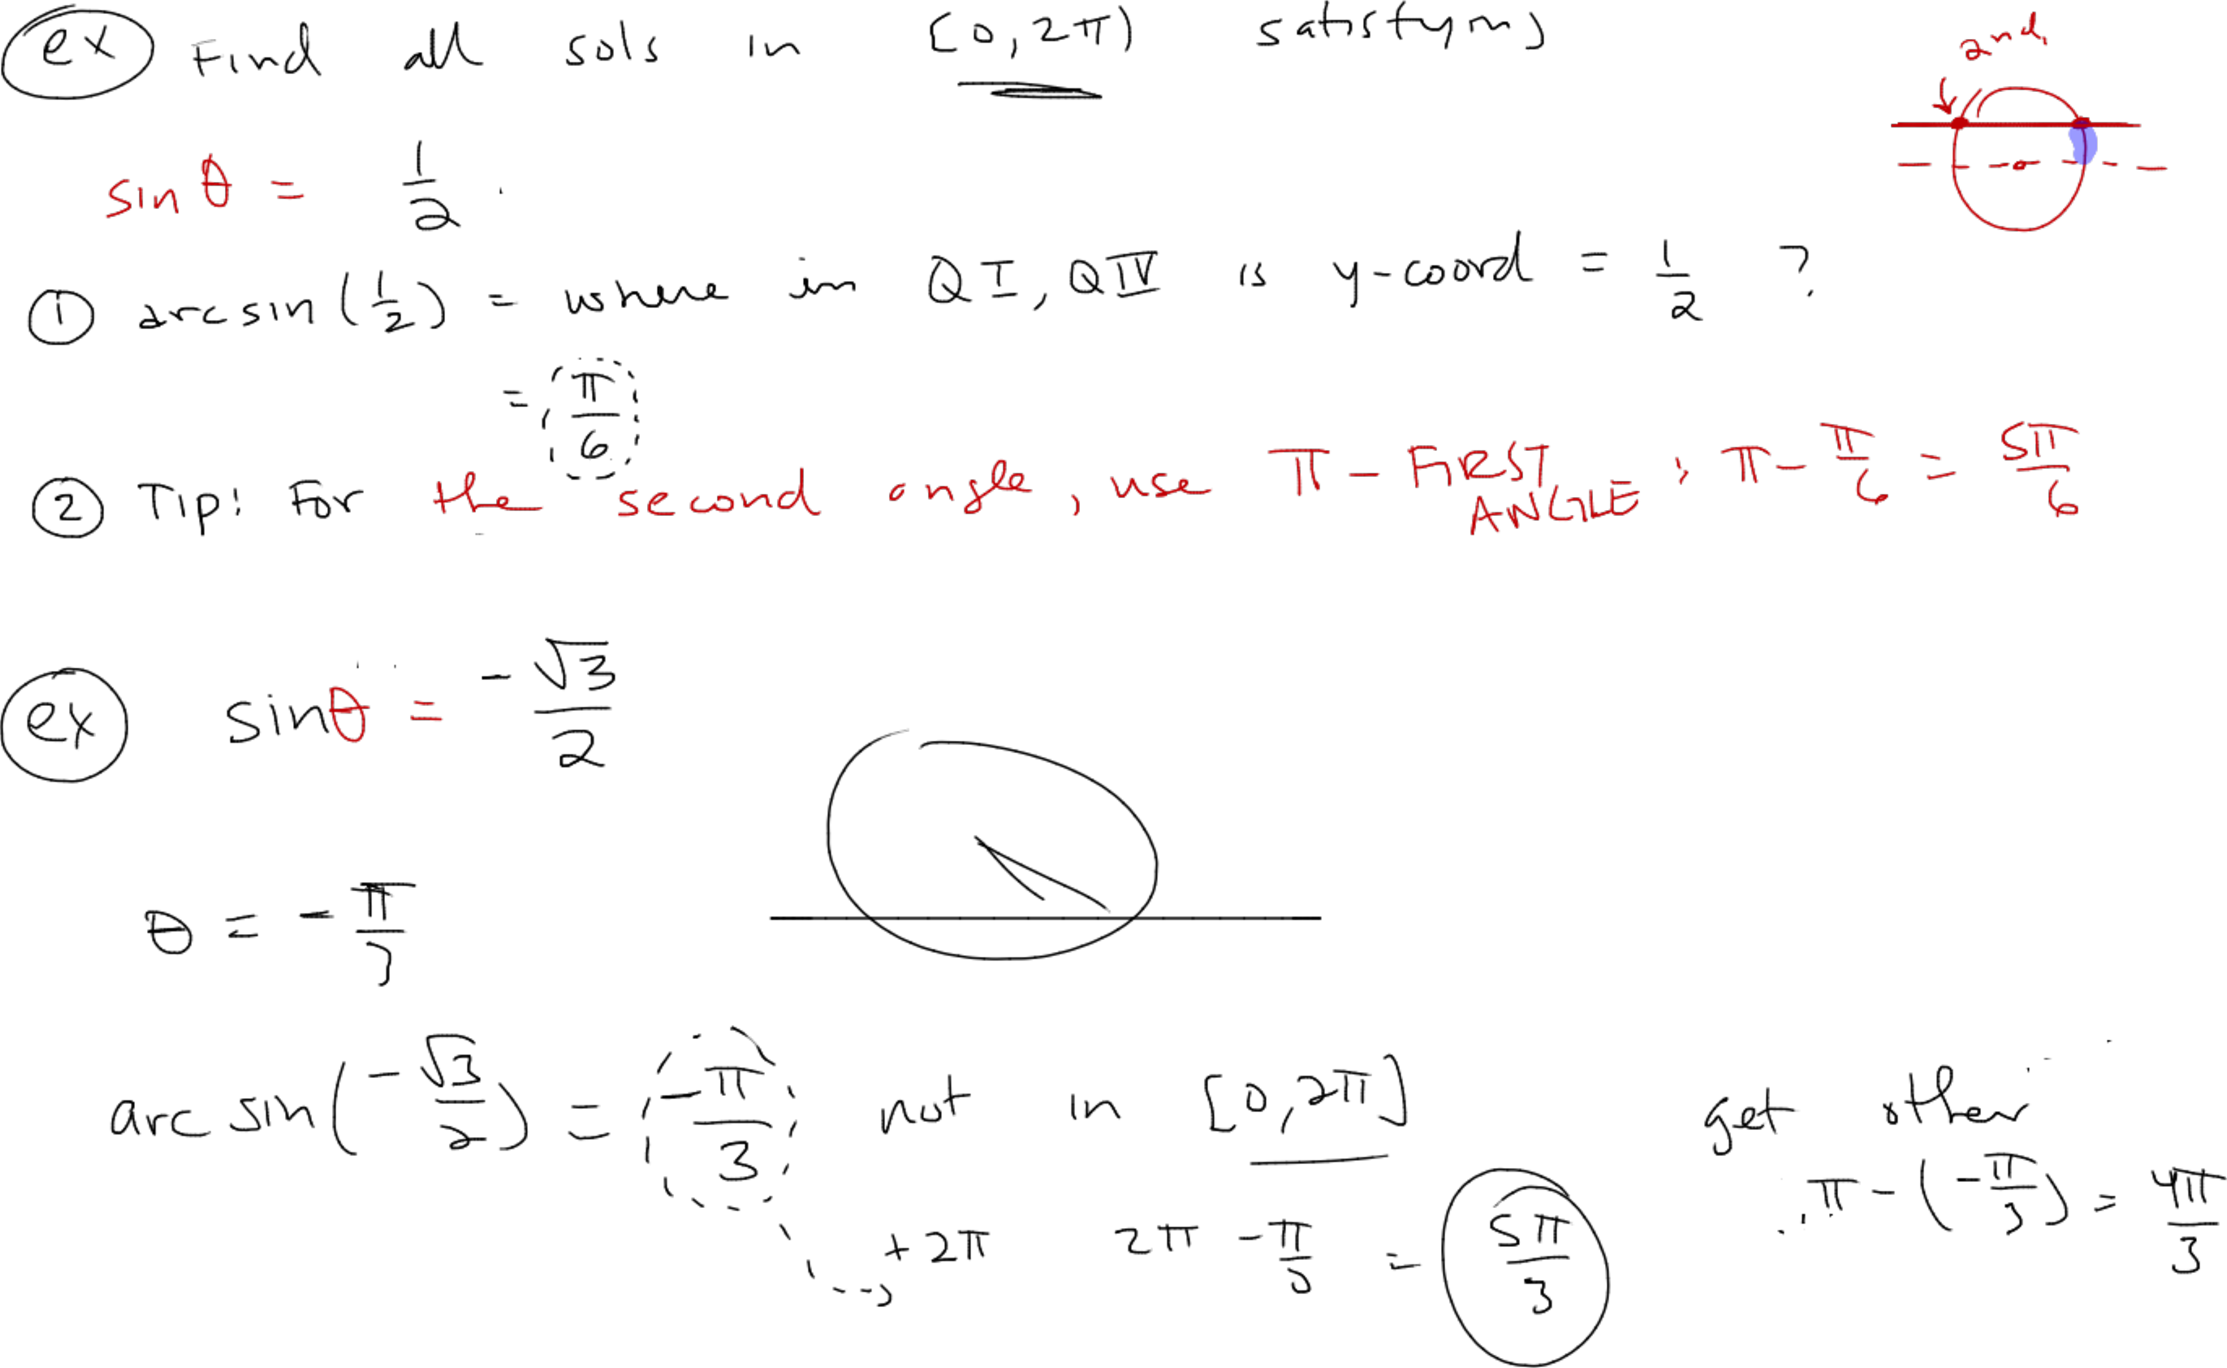 ex Find all sols in [0, 2π) satisfying
2nd.
sin θ = 1/2.
① arcsin(1/2) = where in QI, QIV is y-coord = 1/2 ?
= π/6
② Tip: For the second angle, use π - FIRST ANGLE : π - π/6 = 5π/6
ex sinθ = -√3/2
θ = -π/3
arcsin(-√3/2) = -π/3 not in [0, 2π]
get other
π - (-π/3) = 4π/3
+2π 2π - π/3 = 5π/3